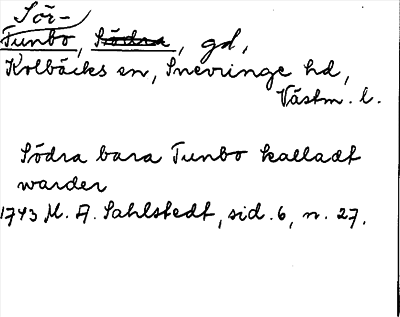 Sör-
Tunbo, Södra, gd,
Kolbäcks sn, Snevringe hd,
Västm. l.
Södra bara Tunbo kalladt
warder
1743 M. A. Sahlstedt, sid. 6, n. 27.